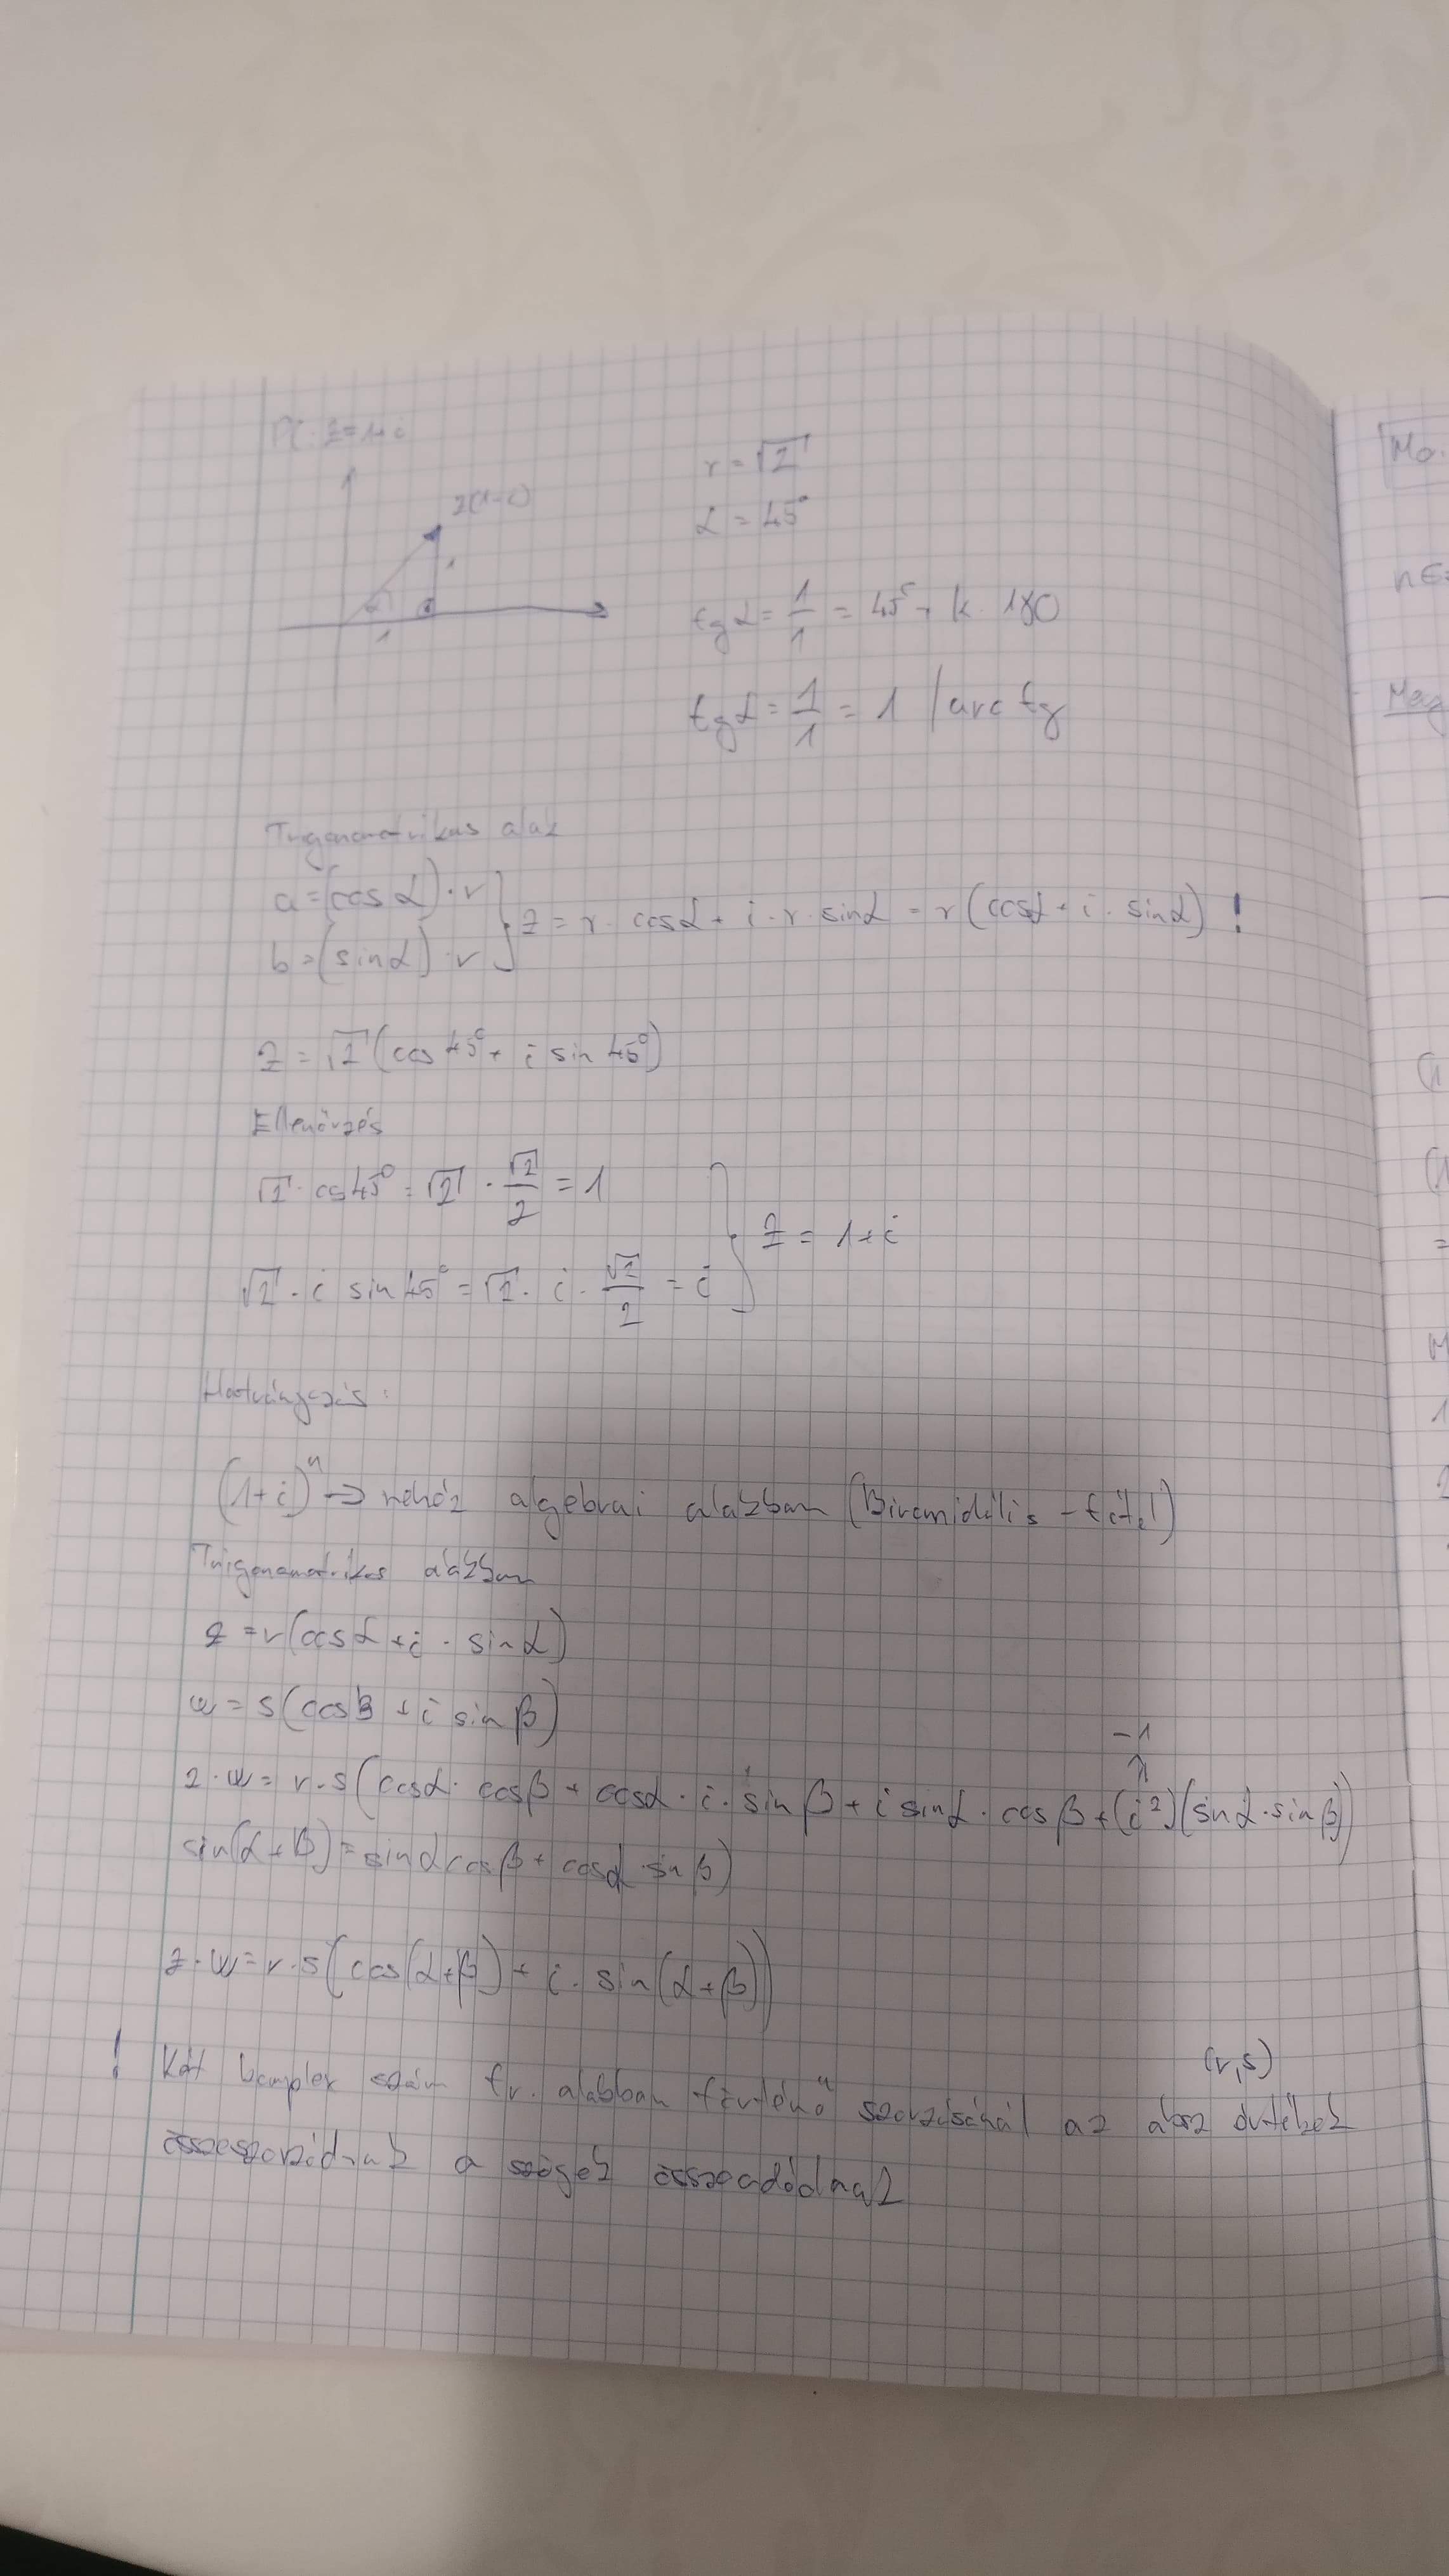 Pl: z=1+i
z(1+i)
r=√2
α=45°
1
α
1
tgα=1/1=45°+k·180
tgα=1/1=1 /arc tg
Trigonometrikus alak
a=(cosα)·r
b=(sinα)·r
z=r·cosα+i·r·sinα=r(cosα+i·sinα) !
z=√2(cos45°+i sin45°)
Ellenőrzés
√2·cos45°=√2·√2/2=1
√2·i sin45°=√2·i·√2/2=i
z=1+i
Hatványozás:
(1+i)^n → nehéz algebrai alakban (Binomiális-tétel)
Trigonometrikus alakban
z=r(cosα+i·sinα)
w=s(cosβ+i sinβ)
-1
z·w=r·s(cosα·cosβ+cosα·i·sinβ+i sinα·cosβ+(i²)(sinα·sinβ))
sin(α+β)=sinαcosβ+cosα·sinβ)
z·w=r·s(cos(α+β)+i·sin(α+β))
(r,s)
! Két komplex szám tr. alakban történő szorzásánál az absz értékek
összeszorzódnak a szögek összeadódnak
Mo.
n∈
Meg
(1
(1
=
1